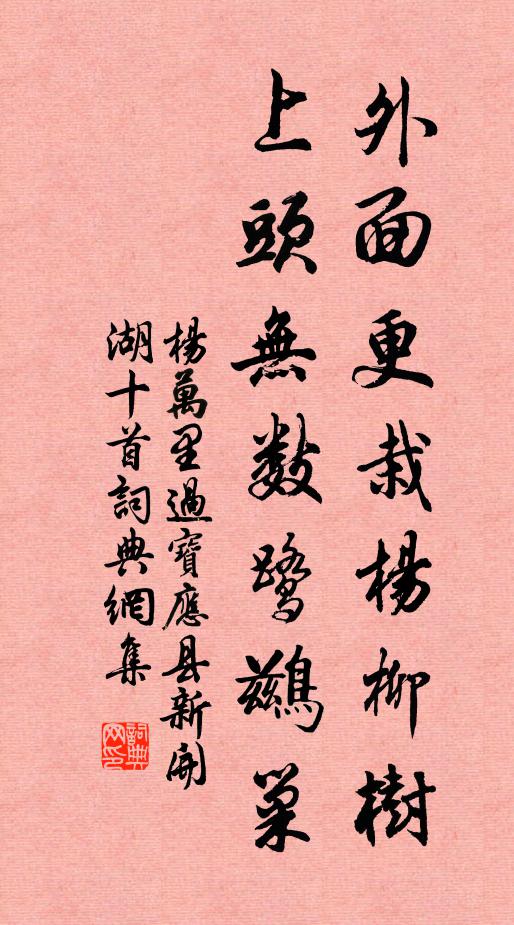 外面更栽楊柳樹
上頭無数鹭鷀巢
楊萬里過寶應县新開
湖十首詞典網集
詞典网印